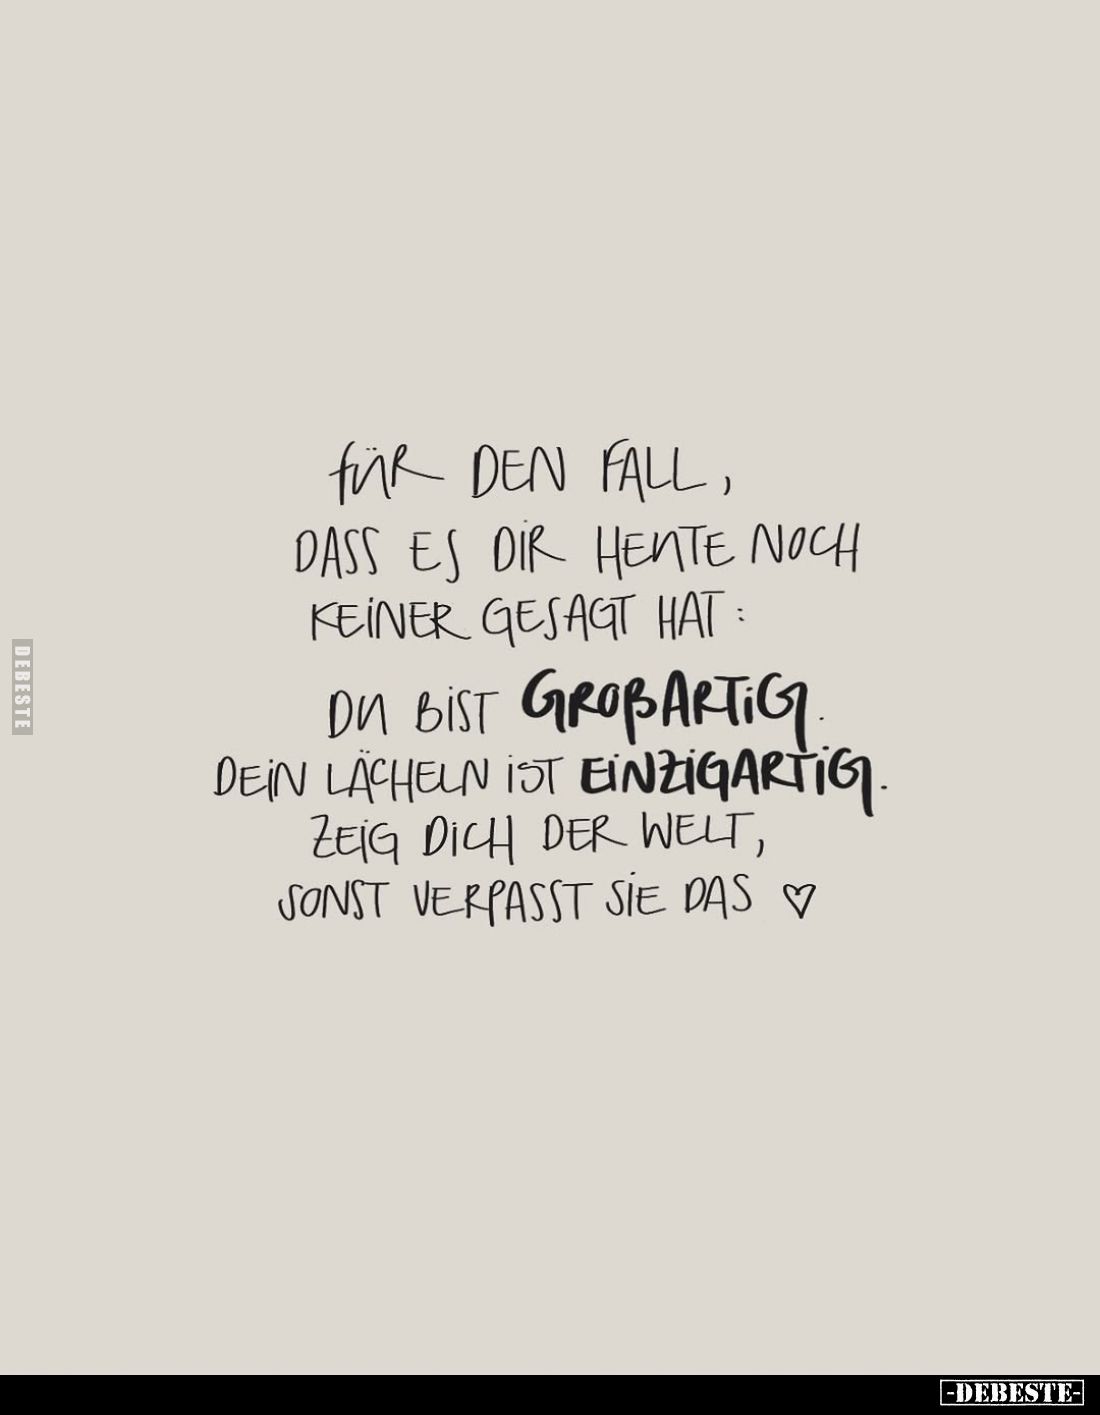 für DEN FALL,
DASS ES DIR HEUTE NOCH
KEINER GESAGT HAT:
DU BIST GROßARTIG.
DEIN LÄCHELN IST EINZIGARTIG.
ZEIG DICH DER WELT,
SONST VERPASST SIE DAS ♡
DEBESTE
-DEBESTE-